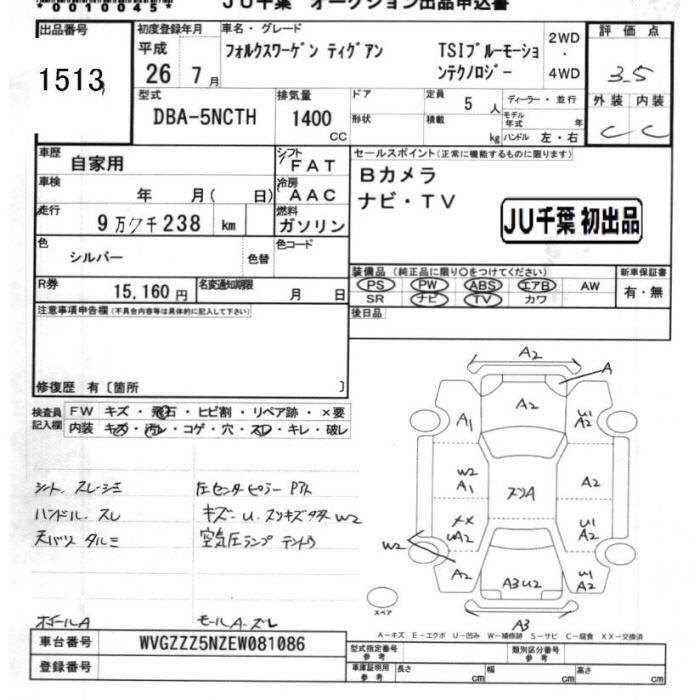 0010045
JU千葉 オークション出品申込書
出品番号 初度登録年月 車名・グレード 評価点
平成 フォルクスワーゲン ティグアン TSIブルーモーショ 2WD
1513 26 7月 ンテクノロジー ・ 4WD 3.5
型式 排気量 ドア 定員 5 人 ディーラー・並行 外装 内装
DBA-5NCTH 1400 CC 形状 積載 kg モデル年式 年 C C
ハンドル 左・右
車歴 自家用 シフト FAT セールスポイント(正常に機能するものに限ります)
車検 年 月( 日) 冷房 AAC Bカメラ
走行 9万7千238 km 燃料 ガソリン ナビ・TV
JU千葉 初出品
色 シルバー 色替 色コード
R券 15,160円 名変通知期限 月 日 装備品(純正品に限り○をつけてください) 新車保証書
PS PW ABS エアB AW 有・無
SR ナビ TV カワ
注意事項申告欄(不具合内容等は具体的に記入して下さい) 後日品
修復歴 有〔箇所 〕
検査員記入欄 FW キズ・飛石・ヒビ割・リペア跡・×要
内装 キズ・汚レ・コゲ・穴・スレ・キレ・破レ
シート スレ・シミ 左センターピラー
ハンドル スレ キズ・U スリキズ W2
天バリ タルミ 空気圧ランプ
A2
A
A2
A1
U1
A2
W2
A1
スリA
A2
XX
UA2
U1
A2
W2
A2
A3U2
U1
A2
A3
スペア
モールA・ズレ
A-キズ E-エクボ U-凹み W-補修跡 S-サビ C-腐食 XX-交換済
車台番号 WVGZZZ5NZEW081086 型式指定番号 参考 類別区分番号 参考
登録番号 車庫証明用 参考 長さ cm 幅 cm 高さ cm